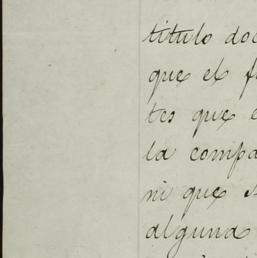 título doc
que el f
tes que e
la compa
ni que s
alguna